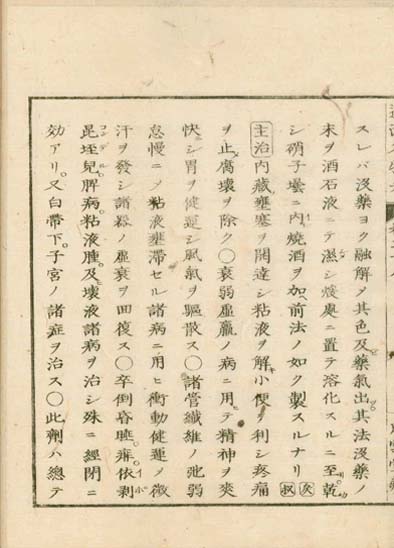 スレバ沒藥ヨク融解〆其色及藥氣出其法沒藥ノ
末ヲ酒石液ニテ濕シ煖處ニ置テ溶化スルニ至乾
シ硝子壜ニ内燒酒ヲ加前法ノ如ク製スルナリ
主治内藏壅塞ヲ開達シ粘液ヲ解小便ヲ利シ疼痛
ヲ止腐壞ヲ除ク〇衰弱虛羸ノ病ニ用テ精神ヲ爽
快シ胃ヲ健運シ風氣ヲ驅散ス〇諸管纖維ノ弛弱
怠慢ニ〆粘液壅滯セル諸病ニ用ヒ衝動健運〆微
汗ヲ發シ諸器ノ虛衰ヲ回復ス〇卒倒昏睡。痲。依剥
昆垤兒。脾病。粘液腫。及壞液諸病ヲ治シ殊ニ經閉ニ
効アリ。又白帶下。子宮ノ諸症ヲ治ス〇此劑ハ總テ